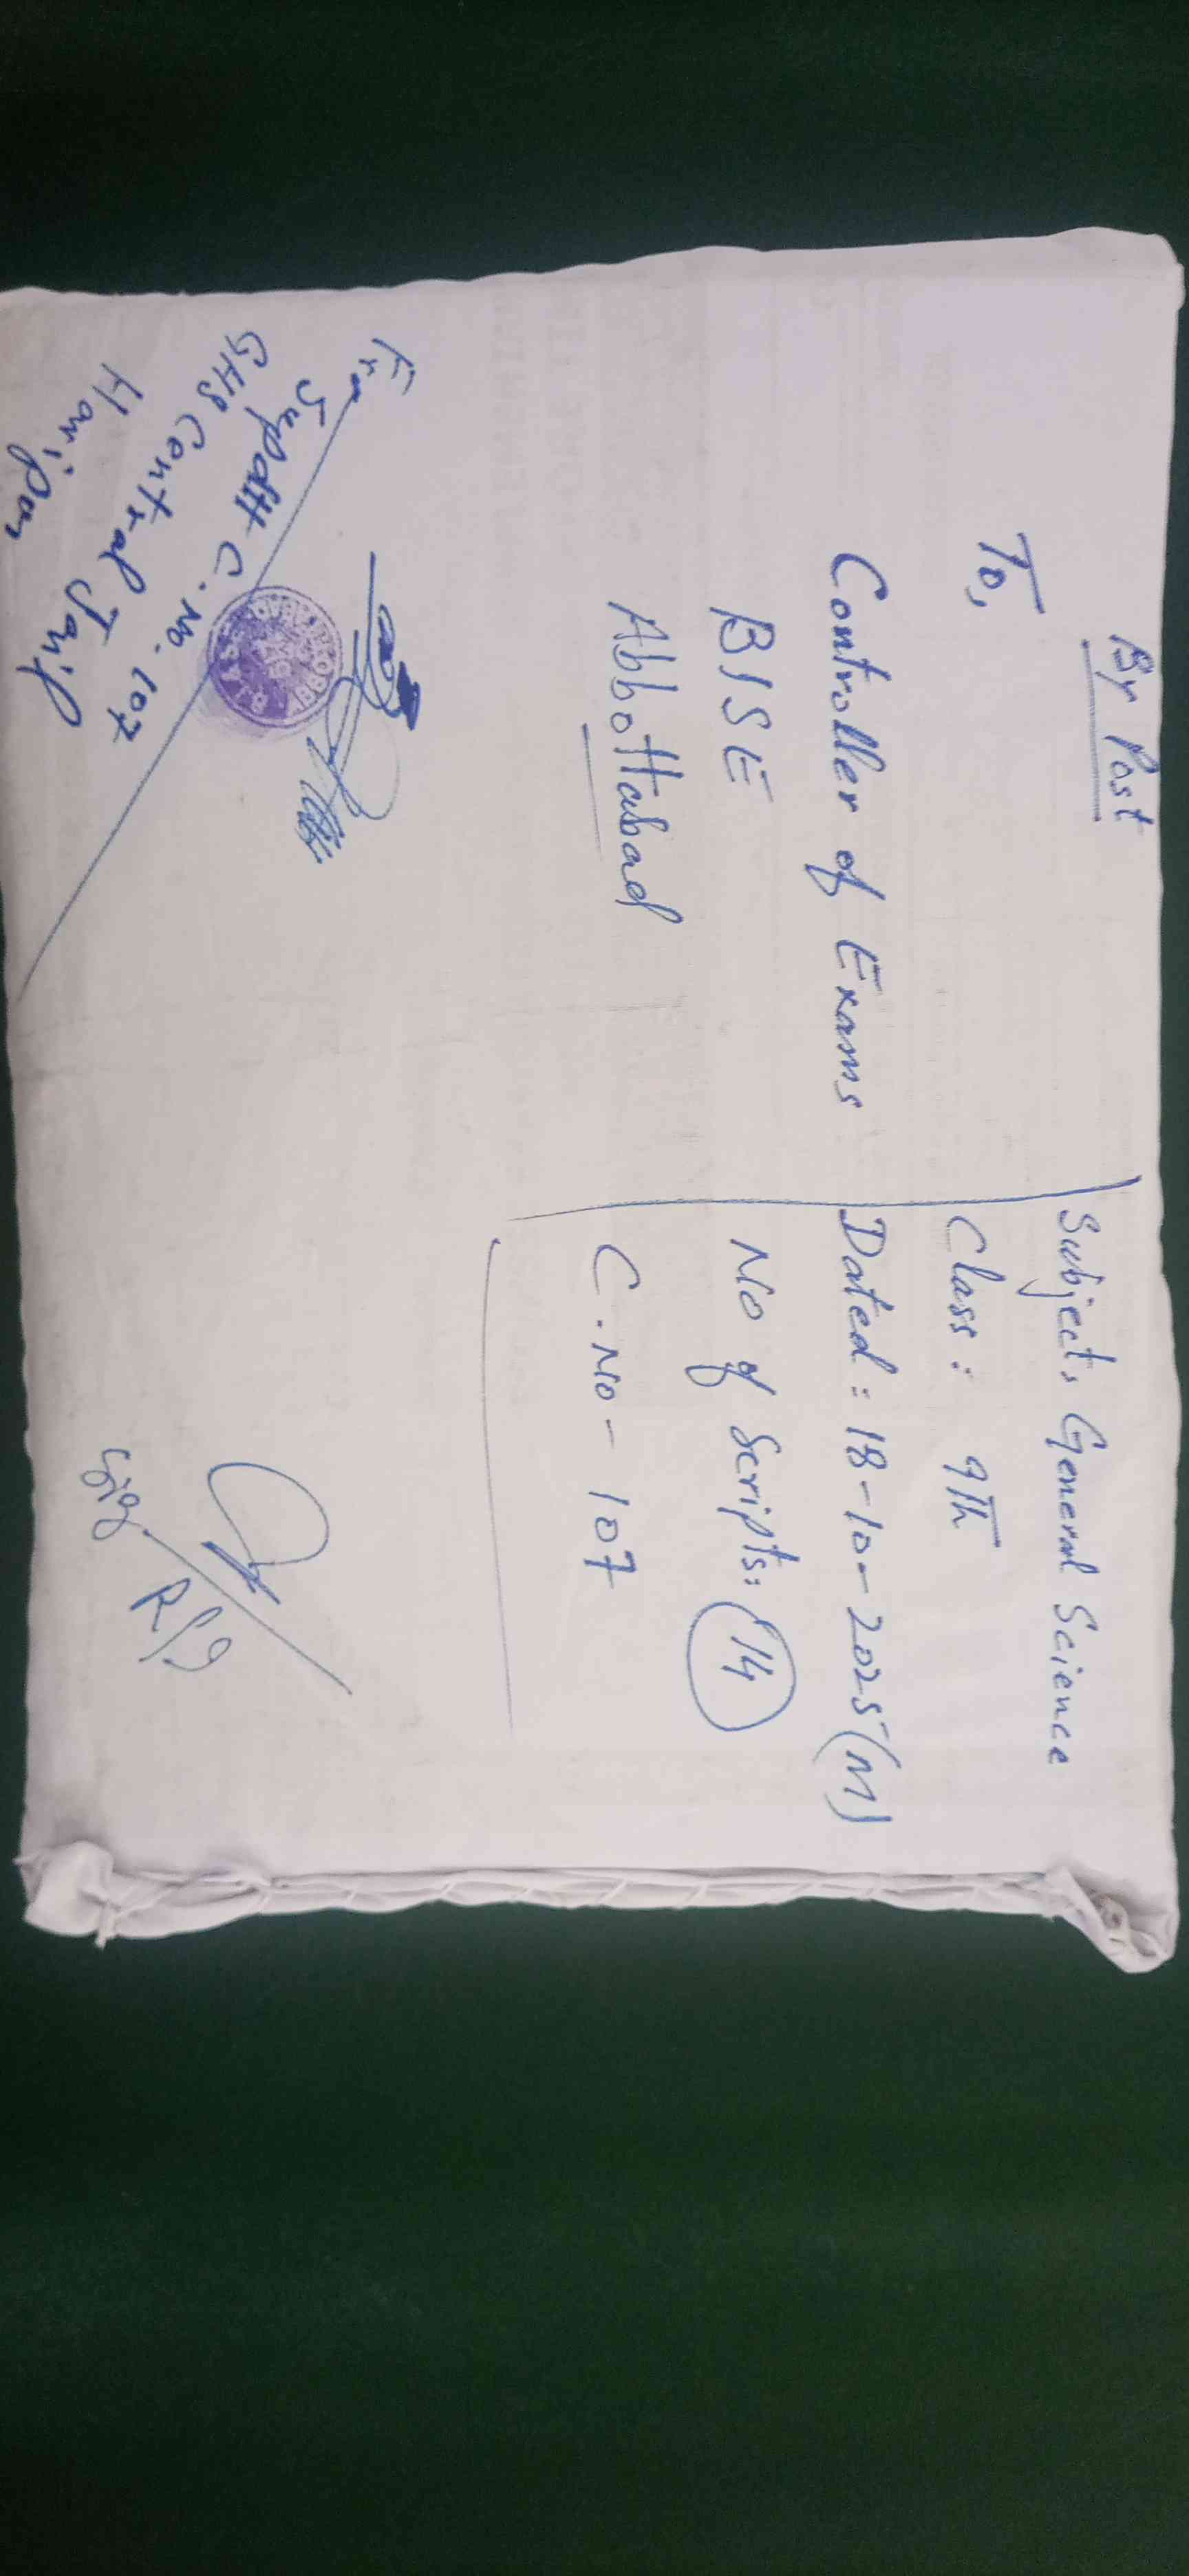 By Post
To,
Controller of Exams
BISE
Abbottabad
Subject: General Science
Class: 9th
Dated: 18-10-2025 (M)
No of Scripts: 14
C.No- 107
From
Supdtt C.No. 107
GHS Central Jail
Haripur
Sig. R/I